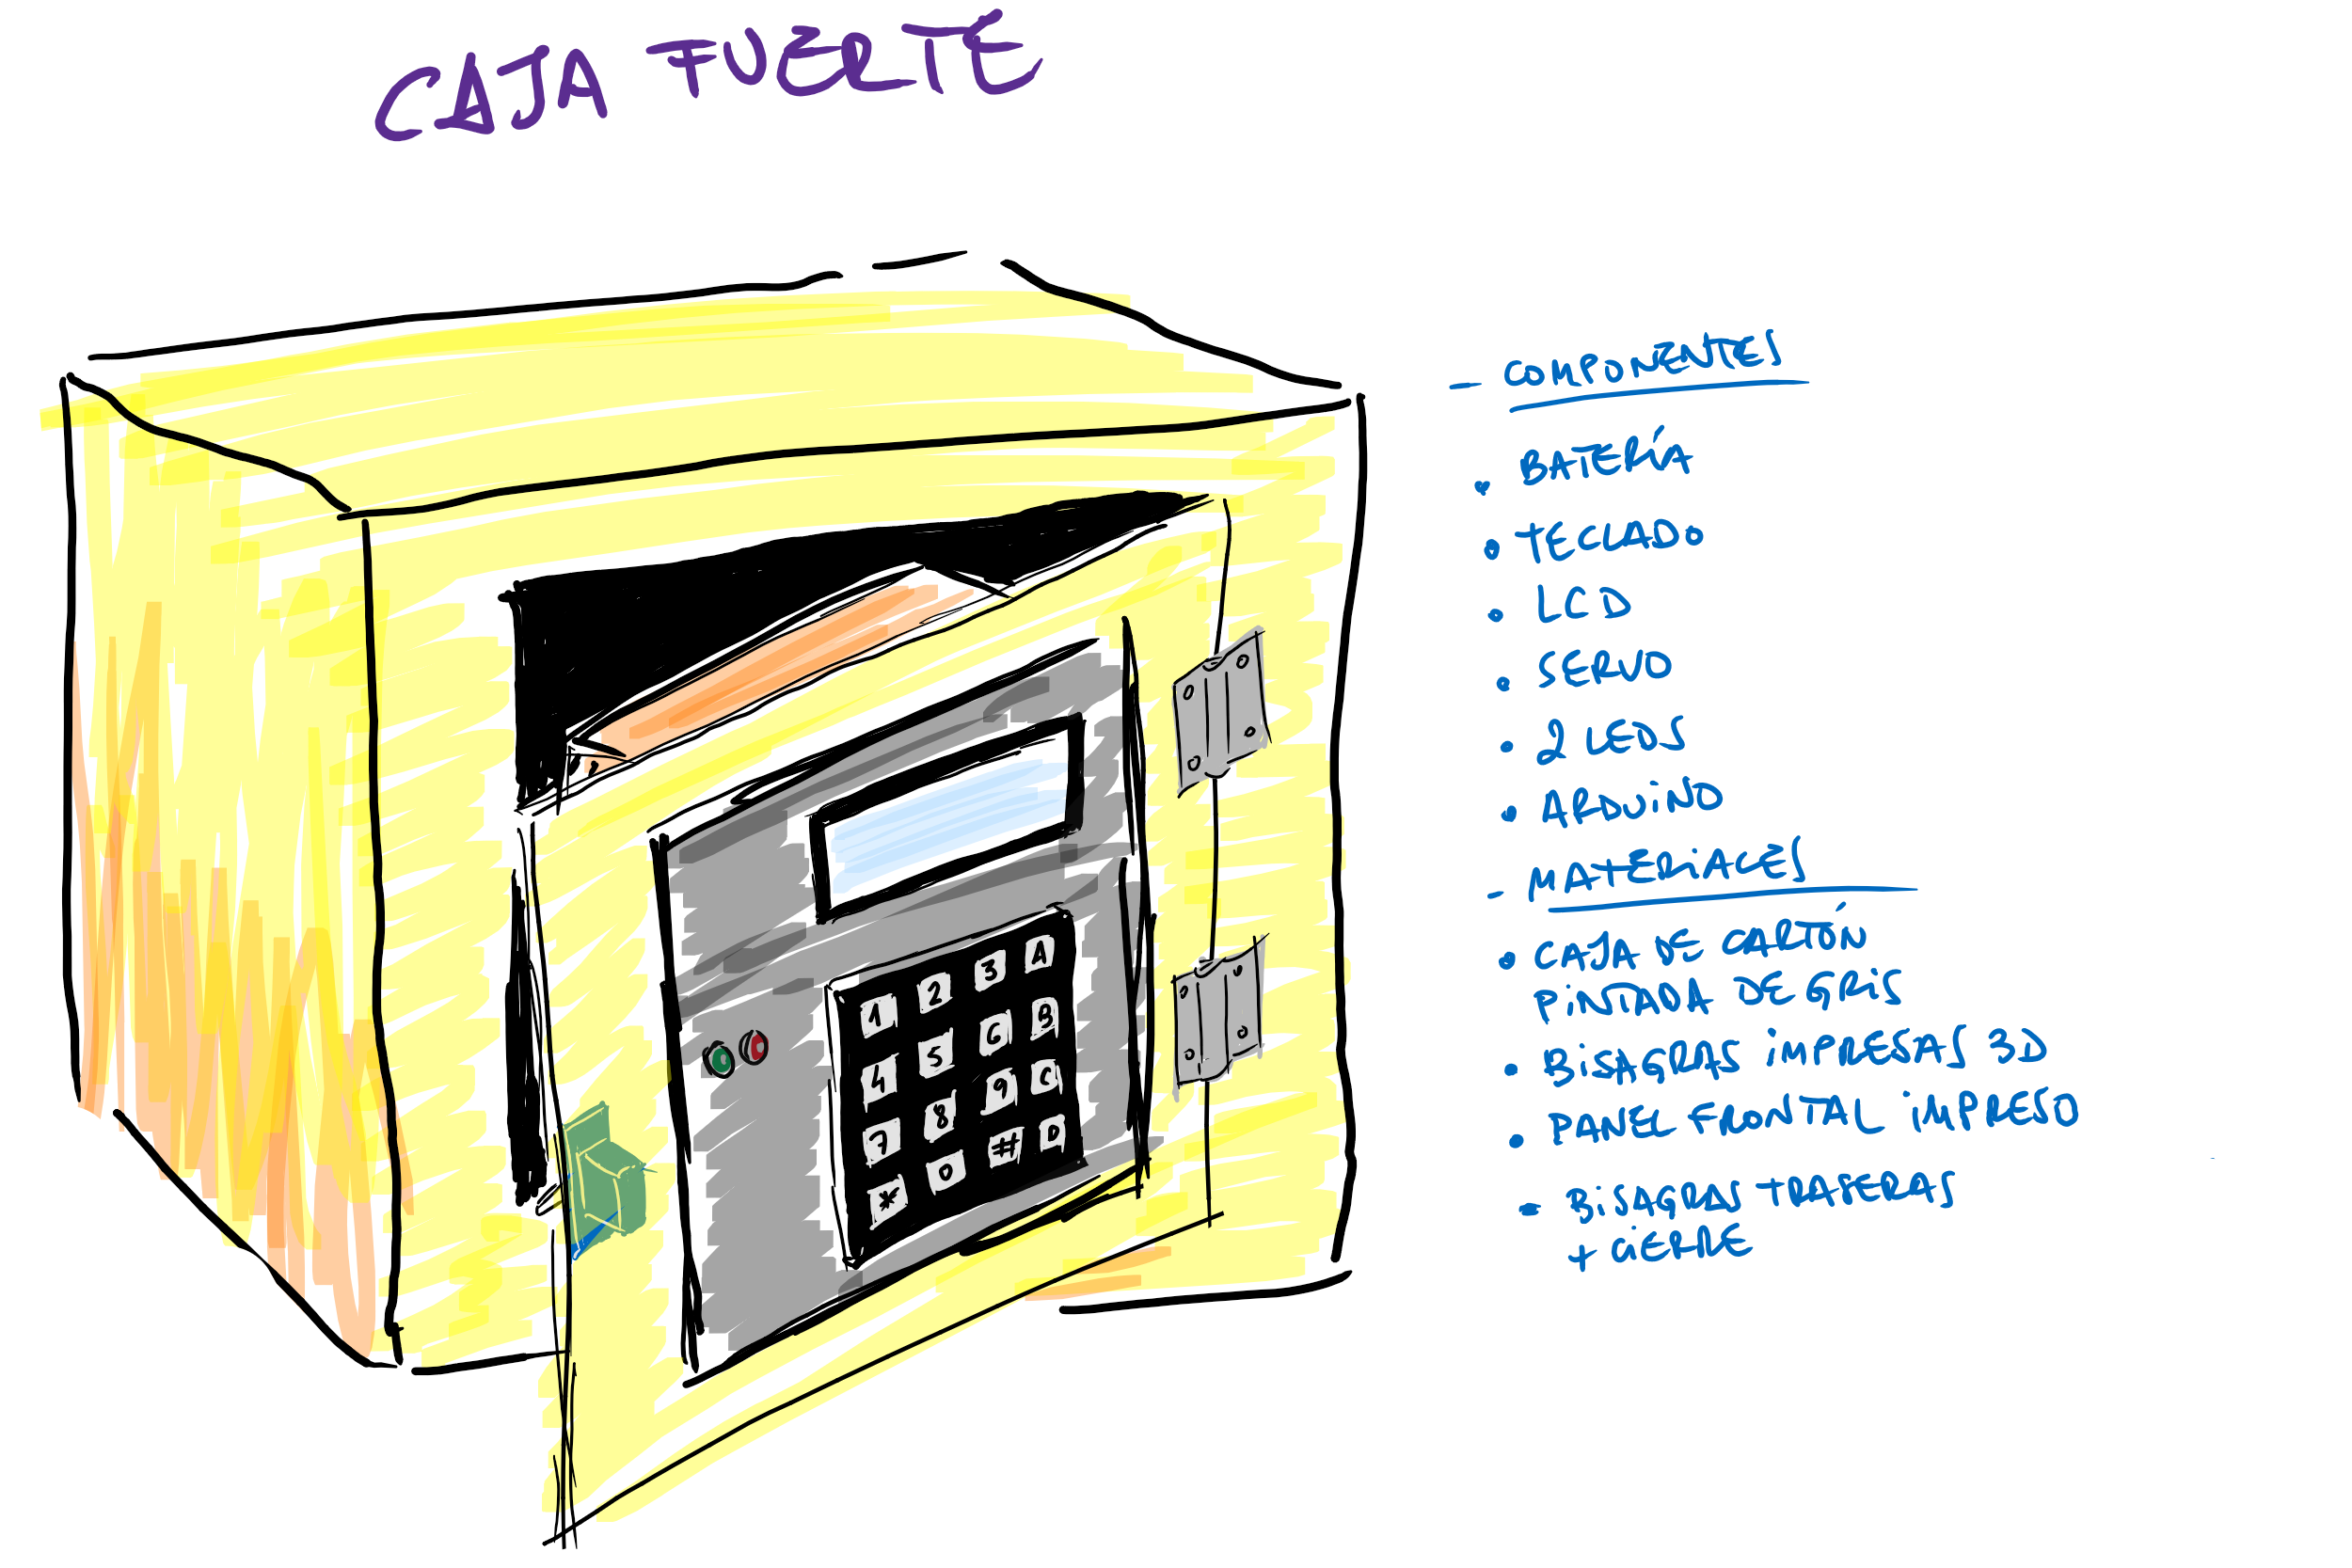 CAJA FUERTE
- COMPONENTES
• BATERÍA
• TECLADO
• LCD
• SERVO
• 2 LEDS
• ARDUINO
- MATERIALES
• CAJA DE CARTÓN
PINTADA DE GRIS
• BISAGRAS IMPRESAS 3D
• PANEL FRONTAL IMPRESO
• BISAGRAS TRASERAS
+ CIERRE
1 2 3 A
4 5 6 B
7 8 9 C
* 0 # D